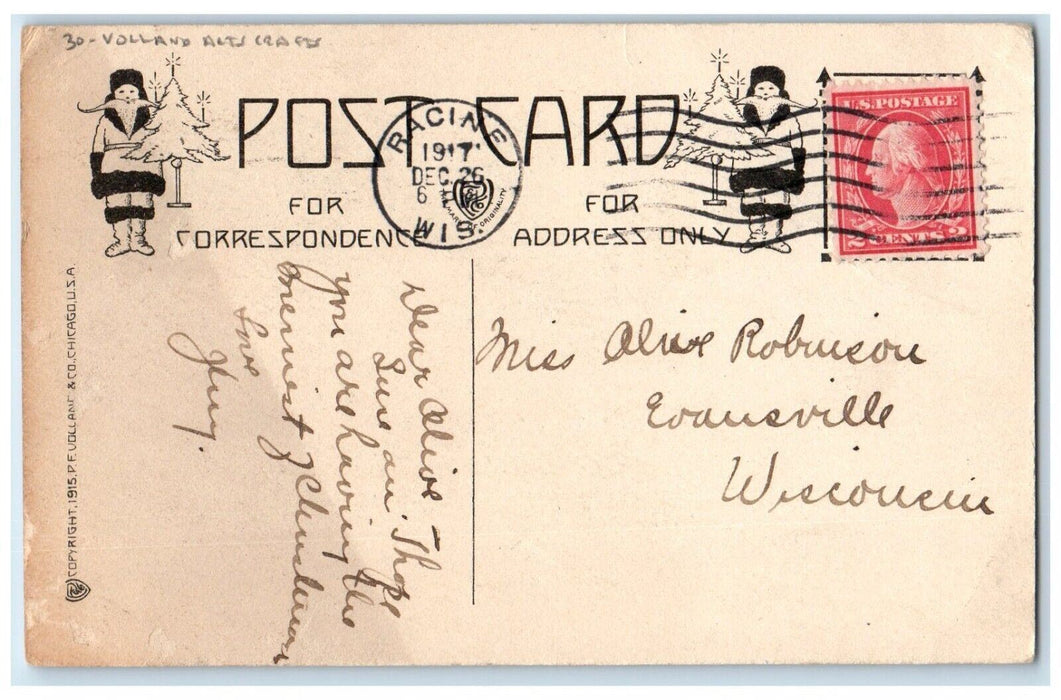 30-VOLLAND ARTS CRAFTS
POST CARD
RACINE
1917
DEC. 26
6
WIS.
U.S. POSTAGE
2 CENTS 2
FOR
CORRESPONDENCE
FOR
ADDRESS ONLY
ORIGINALITY
COPYRIGHT, 1915, P.F. VOLLAND & CO. CHICAGO, U.S.A.
Dear Alice -
Love an' I hope
you are having the
merriest of Christmas
Love
Miss Alice Robinson
Evansville
Wisconsin